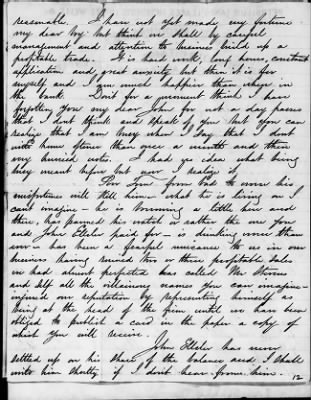 reasonable. I have not yet made my fortune
my dear boy but think we shall by careful
management and attention to business build up a
profitable trade. It is hard work, long hours, constant
application and great anxiety but then it is for
myself and I am much happier than when in
the bank. Don't for a moment think I have
forgotten you my dear John for not a day passes
that I dont think and speak of you but you can
realize that I am busy when I say that I dont
write home oftener than once a month and then
my hurried notes. I had no idea what being
busy meant before but now I realize it.
Poor Tom from bad to worse his
misfortunes will kill him - what he is living on I
cant imagine - he is borrowing a little here and
there, has pawned his watch or rather the one you
and John Ellsler paid for - is drinking more than
ever - has been a fearful nuisance to us in our
business having ruined two or three profitable sales
we had almost perfected has called Mr Stevens
and self all the villainous names you can imagine -
injured our reputation by representing himself as
being at the head of the firm until we have been
obliged to publish a card in the paper a copy of
which you will receive.
John Ellsler has never
settled up on his share of the balance and I shall
write him shortly if I don't hear from him.
12